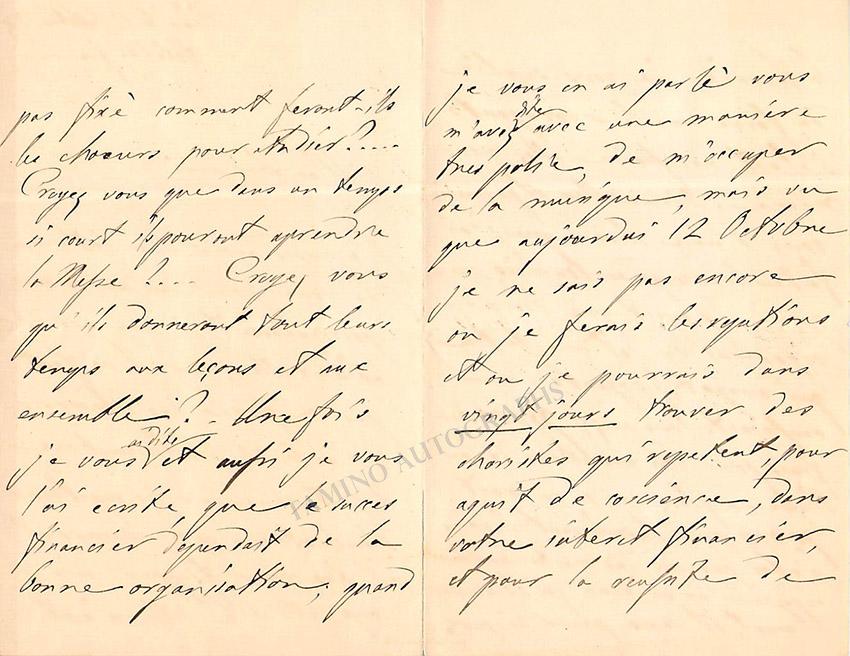 pas fixè comment feront-ils
les choeurs pour etudier?....
Croyez vous que dans un temps
si court ils pouront aprendre
la Messe?.... Croyez vous
qu'ils donneront tout leurs
temps aux leçons et aux
ensemble?- Une fois
je vous ai dite et aussi je vous
l'ai ecrite, que le succes
financier dependait de la
bonne organisation; quand
je vous en ai parlè vous
m'avez dite avec une maniére
tres polie, de m'occuper
de la musique, mais vu
que aujourdui 12 Octobre
je ne sais pas encore
ou je ferais les repetitions
et ou je pourrais dans
vingt jours trouver des
choristes qui repetent, pour
aquit de coscience, dans
votre interet financier,
et pour la reussite de
TAMINO AUTOGRAPHS